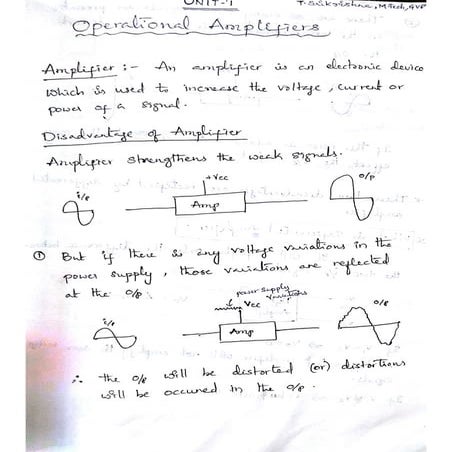 UNIT-1
T. Saikrishna, M.Tech, GVP
Operational Amplifiers
Amplifier :- An amplifier is an electronic device
which is used to increase the voltage, current or
power of a signal.
Disadvantage of Amplifier
Amplifier strengthens the weak signals.
+Vcc
i/p
Amp
o/p
① But if there is any voltage variations in the
power supply, those variations are reflected
at the o/p.
power supply
variations
Vcc
i/p
Amp
o/p
∴ the o/p will be distorted (or) distortions
will be occured in the o/p.